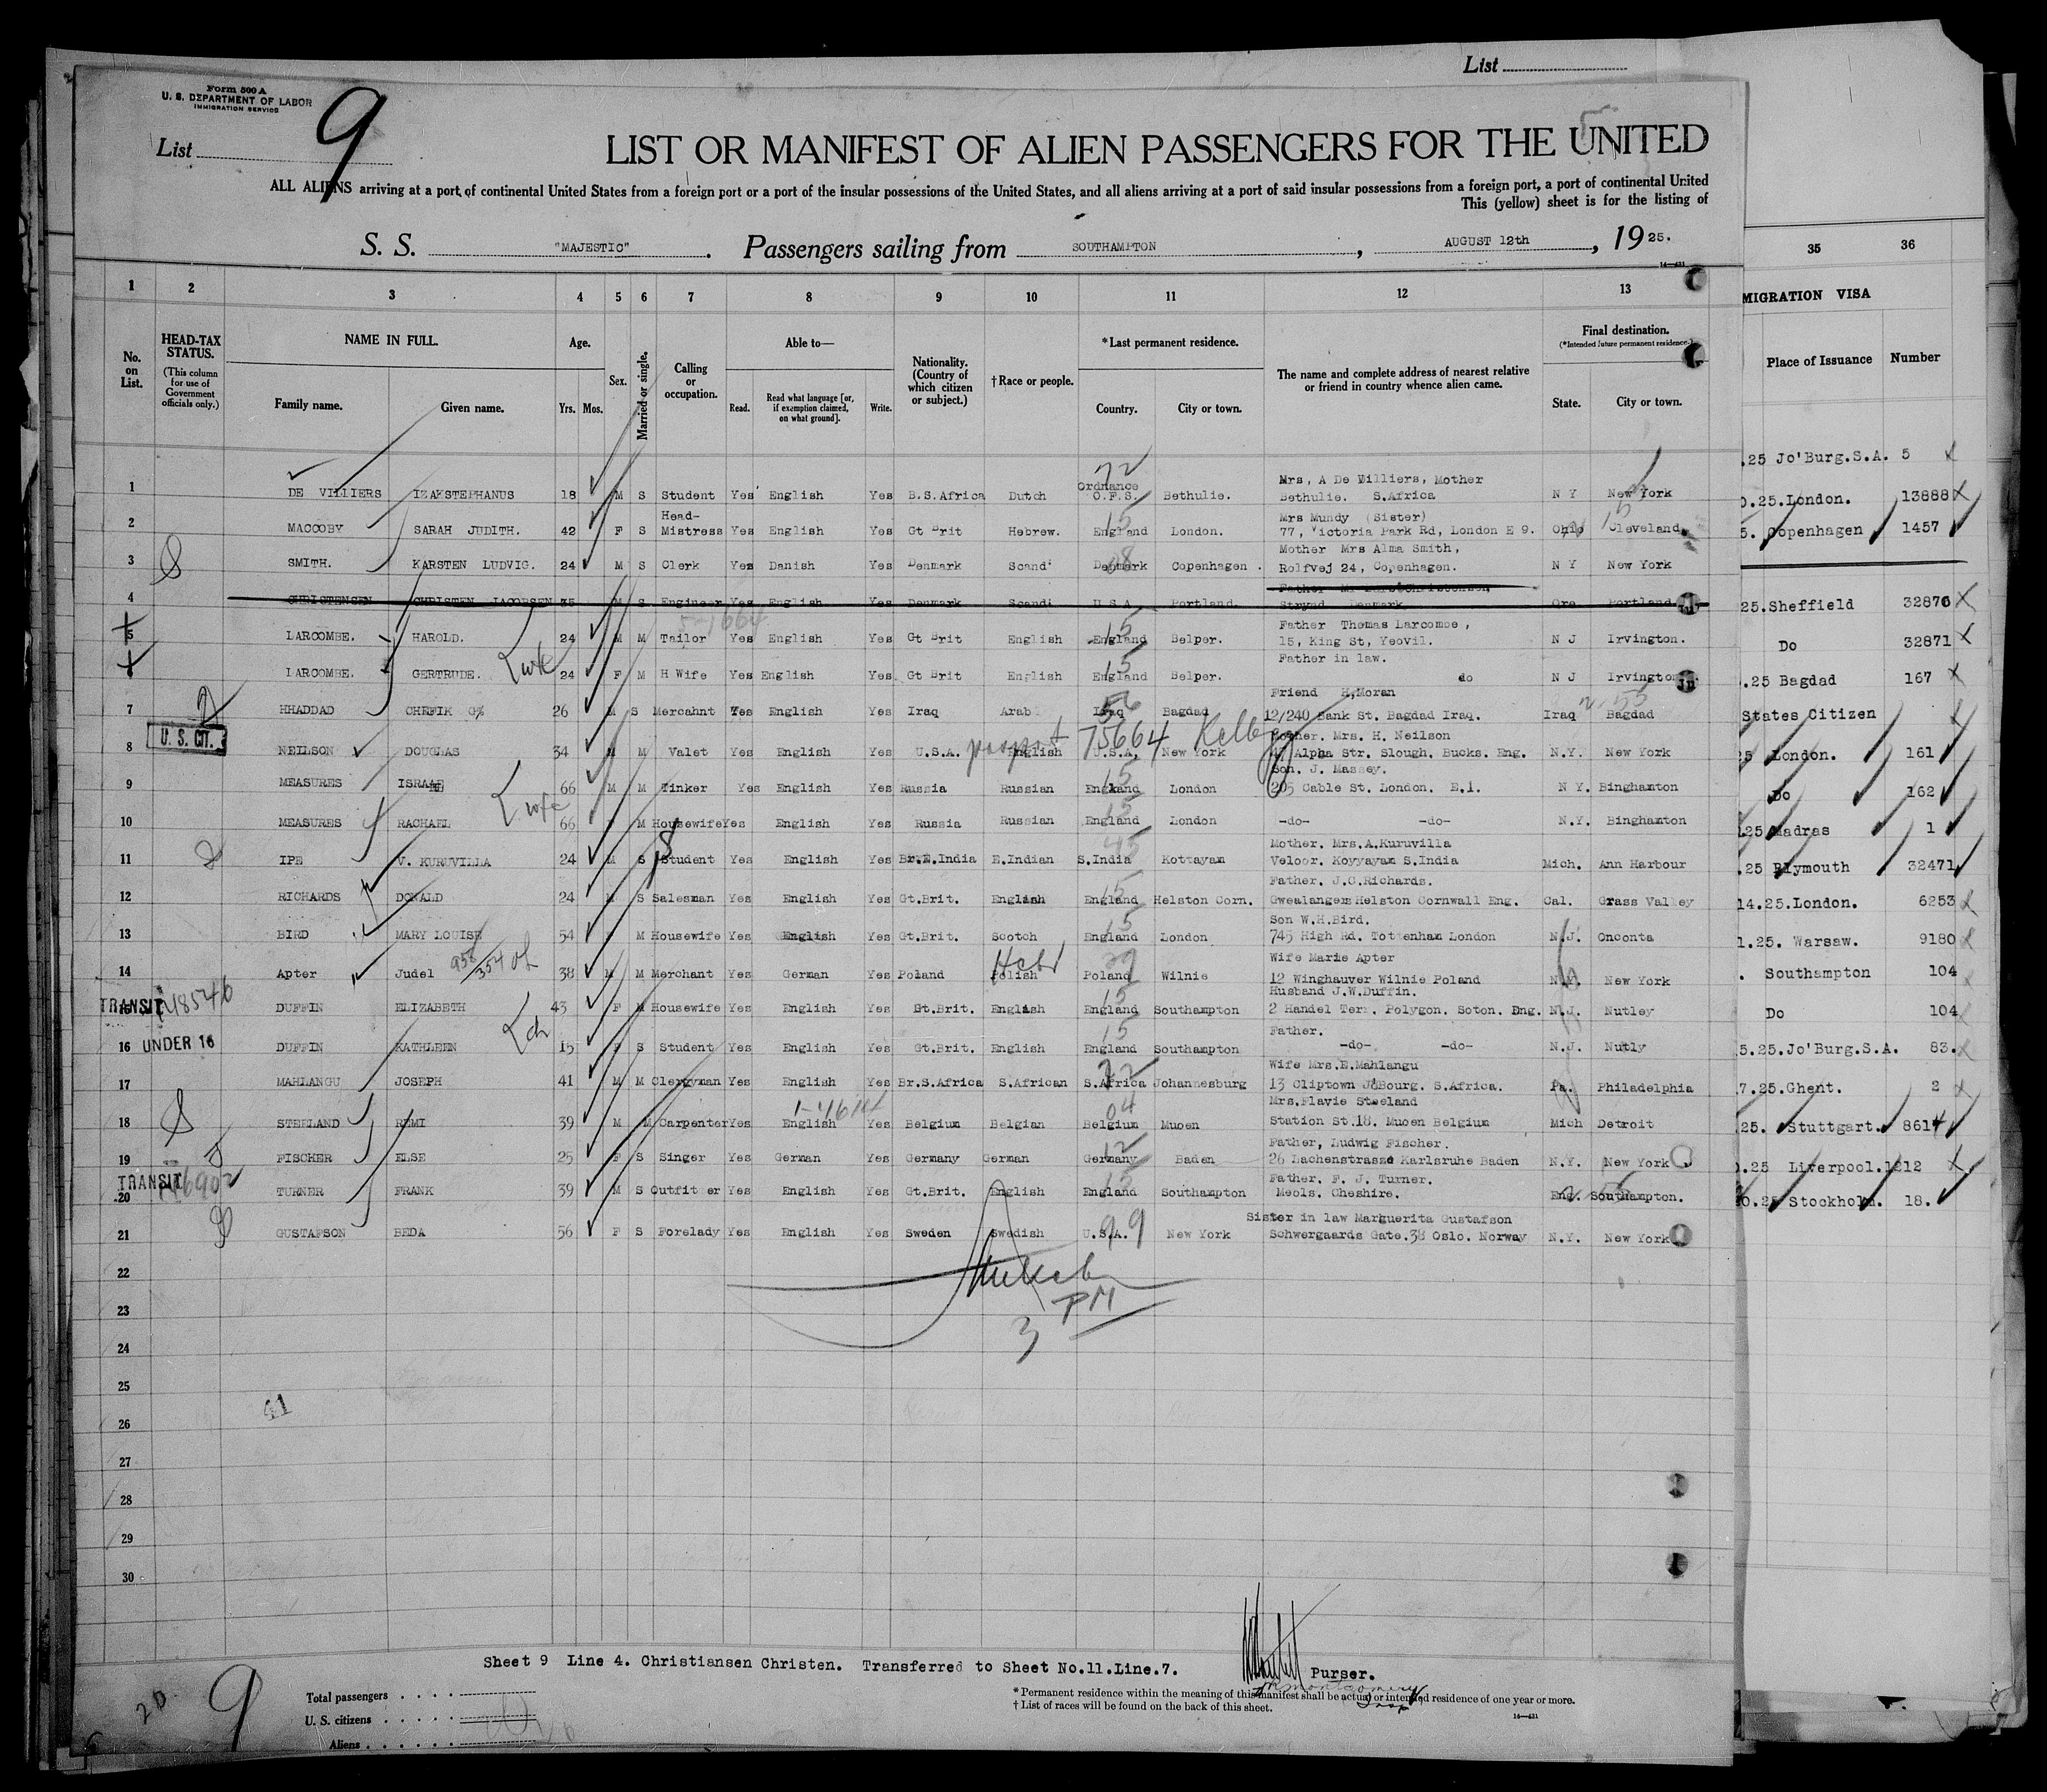 List
Form 500 A
U. S. DEPARTMENT OF LABOR
IMMIGRATION SERVICE
List 9
5
LIST OR MANIFEST OF ALIEN PASSENGERS FOR THE UNITED
ALL ALIENS arriving at a port of continental United States from a foreign port or a port of the insular possessions of the United States, and all aliens arriving at a port of said insular possessions from a foreign port, a port of continental United
This (yellow) sheet is for the listing of
S. S. "MAJESTIC". Passengers sailing from SOUTHAMPTON, AUGUST 12th, 1925.
14—431
1 2 3 4 5 6 7 8 9 10 11 12 13 35 36
No. on List.
HEAD-TAX STATUS.
(This column for use of Government officials only.)
NAME IN FULL.
Family name. Given name.
Age.
Yrs. Mos.
Sex.
Married or single.
Calling or occupation.
Able to—
Read. Read what language [or, if exemption claimed, on what ground]. Write.
Nationality. (Country of which citizen or subject.)
†Race or people.
*Last permanent residence.
Country. City or town.
The name and complete address of nearest relative or friend in country whence alien came.
Final destination.
(*Intended future permanent residence.)
State. City or town.
MIGRATION VISA
Place of Issuance Number
72
1 DE VILLIERS IZAKSTEPHANUS 18 M S Student Yes English Yes B.S.Africa Dutch Ordnance O.F.S. Bethulie. Mrs, A De Milliers, Mother
Bethulie. S.Africa N Y New York
.25 Jo'Burg.S.A. 5
2 MACCOBY SARAH JUDITH. 42 F S Head-Mistress Yes English Yes Gt Brit Hebrew. England London. Mrs Mundy (Sister)
77, Victoria Park Rd, London E 9. Ohio Cleveland.
0.25.London. 13888
3 SMITH. KARSTEN LUDVIG. 24 M S Clerk Yes Danish Yes Denmark Scand' Denmark Copenhagen. Mother Mrs Alma Smith,
Rolfvej 24, Copenhagen. N Y New York
5. Copenhagen 1457
4 CHRISTENSEN CHRISTEN JACOBSEN 35 M S Engineer Yes English Yes Denmark Scandi U S A Portland.
Strynd Denmark Ore Portland
5 LARCOMBE. HAROLD. 24 M M Tailor Yes English Yes Gt Brit English England Belper. Father Thomas Larcombe,
15, King St, Yeovil. N J Irvington.
25.Sheffield 32870
6 LARCOMBE. GERTRUDE. wife 24 F M H Wife Yes English Yes Gt Brit English England Belper. Father in law.
do N J Irvington.
Do 32871
7 HHADDAD CHEFIK 26 M S Mercahnt Yes English Yes Iraq Arab Iraq Bagdad Friend H,Moran
12/240 Bank St. Bagdad Iraq. Iraq Bagdad
.25 Bagdad 167
U. S. CIT.
passport 75664
8 NEILSON DOUGLAS 34 M M Valet Yes English Yes U.S.A. English U.S.A. New York Mother. Mrs. H. Neilson
Alpha Str. Slough. Bucks. Eng. N.Y. New York
States Citizen
9 MEASURES ISRAEL 66 M M Tinker Yes English Yes Russia Russian England London Son. J. Massey.
205 Cable St. London. E.1. N Y. Binghamton
25 London. 161
10 MEASURES RACHAEL wife 66 F M Housewife Yes English Yes Russia Russian England London -do- -do- N.Y. Binghamton
Do 162
11 IPE V. KURUVILLA 24 M S Student Yes English Yes Br.E.India E.Indian S.India Kottayam Mother. Mrs.A.Kuruvilla
Veloor. Koyyayam S.India Mich. Ann Harbour
.25 Madras 1
12 RICHARDS DONALD 24 M S Salesman Yes English Yes Gt.Brit. English England Helston Corn. Father. J.C.Richards.
Gwealangers Helston Cornwall Eng. Cal. Grass Valley
.25 Plymouth 32471
13 BIRD MARY LOUISE 54 F M Housewife Yes English Yes Gt.Brit. Scotch England London Son W.H.Bird.
745 High Rd. Tottenham London N.J. Oneonta
14.25.London. 6253
14 Apter Judel 38 M M Merchant Yes German Yes Poland Polish Hebr Poland Wilnie Wife Marie Apter
12 Winghauver Wilnie Poland N.Y. New York
1.25. Warsaw. 9180
TRANSIT 148546
15 DUFFIN ELIZABETH 43 F M Housewife Yes English Yes Gt.Brit. English England Southampton Husband J.W.Duffin.
2 Handel Terr. Polygon. Soton. Eng. N.J. Nutley
. Southampton 104
16 UNDER 16 DUFFIN KATHLEEN ch 15 F S Student Yes English Yes Gt.Brit. English England Southampton Father.
-do- -do- N.J. Nutly
Do 104
17 MAHLANGU JOSEPH 41 M M Clergyman Yes English Yes Br.S.Africa S.African S.Africa Johannesburg Wife Mrs.E.Mahlangu
13 Cliptown JoBourg. S.Africa. Pa. Philadelphia
5.25.Jo'Burg.S.A. 83.
18 STEELAND REMI 39 M M Carpenter Yes English Yes Belgium Belgian Belgium Muoen Mrs.Flavie Steeland
Station St.18. Muoen Belgium Mich Detroit
7.25.Ghent. 2
19 FISCHER ELSE 25 F S Singer Yes German Yes Germany German Germany Baden Father, Ludwig Fischer.
26 Lachenstrasse Karlsruhe Baden N.Y. New York
25. Stuttgart. 8614
TRANSIT 146902
20 TURNER FRANK 39 M S Outfitter Yes English Yes Gt.Brit. English England Southampton Father. F. J. Turner.
Meols. Cheshire. Eng. Southampton.
.25 Liverpool.1212
21 GUSTAFSON BEDA 56 F S Forelady Yes English Yes Sweden Swedish U.S.A. 99 New York Sister in law Marguerita Gustafson
Schwergaards Gate.38 Oslo. Norway N.Y. New York
0.25 Stockholm. 18.
22
23 PM
3
24
25
26 41
27
28
29
30
Sheet 9 Line 4. Christiansen Christen. Transferred to Sheet No.11.Line.7.
Purser.
20 9
Total passengers
U. S. citizens
Aliens
*Permanent residence within the meaning of this manifest shall be actual or intended residence of one year or more.
†List of races will be found on the back of this sheet.
14—431